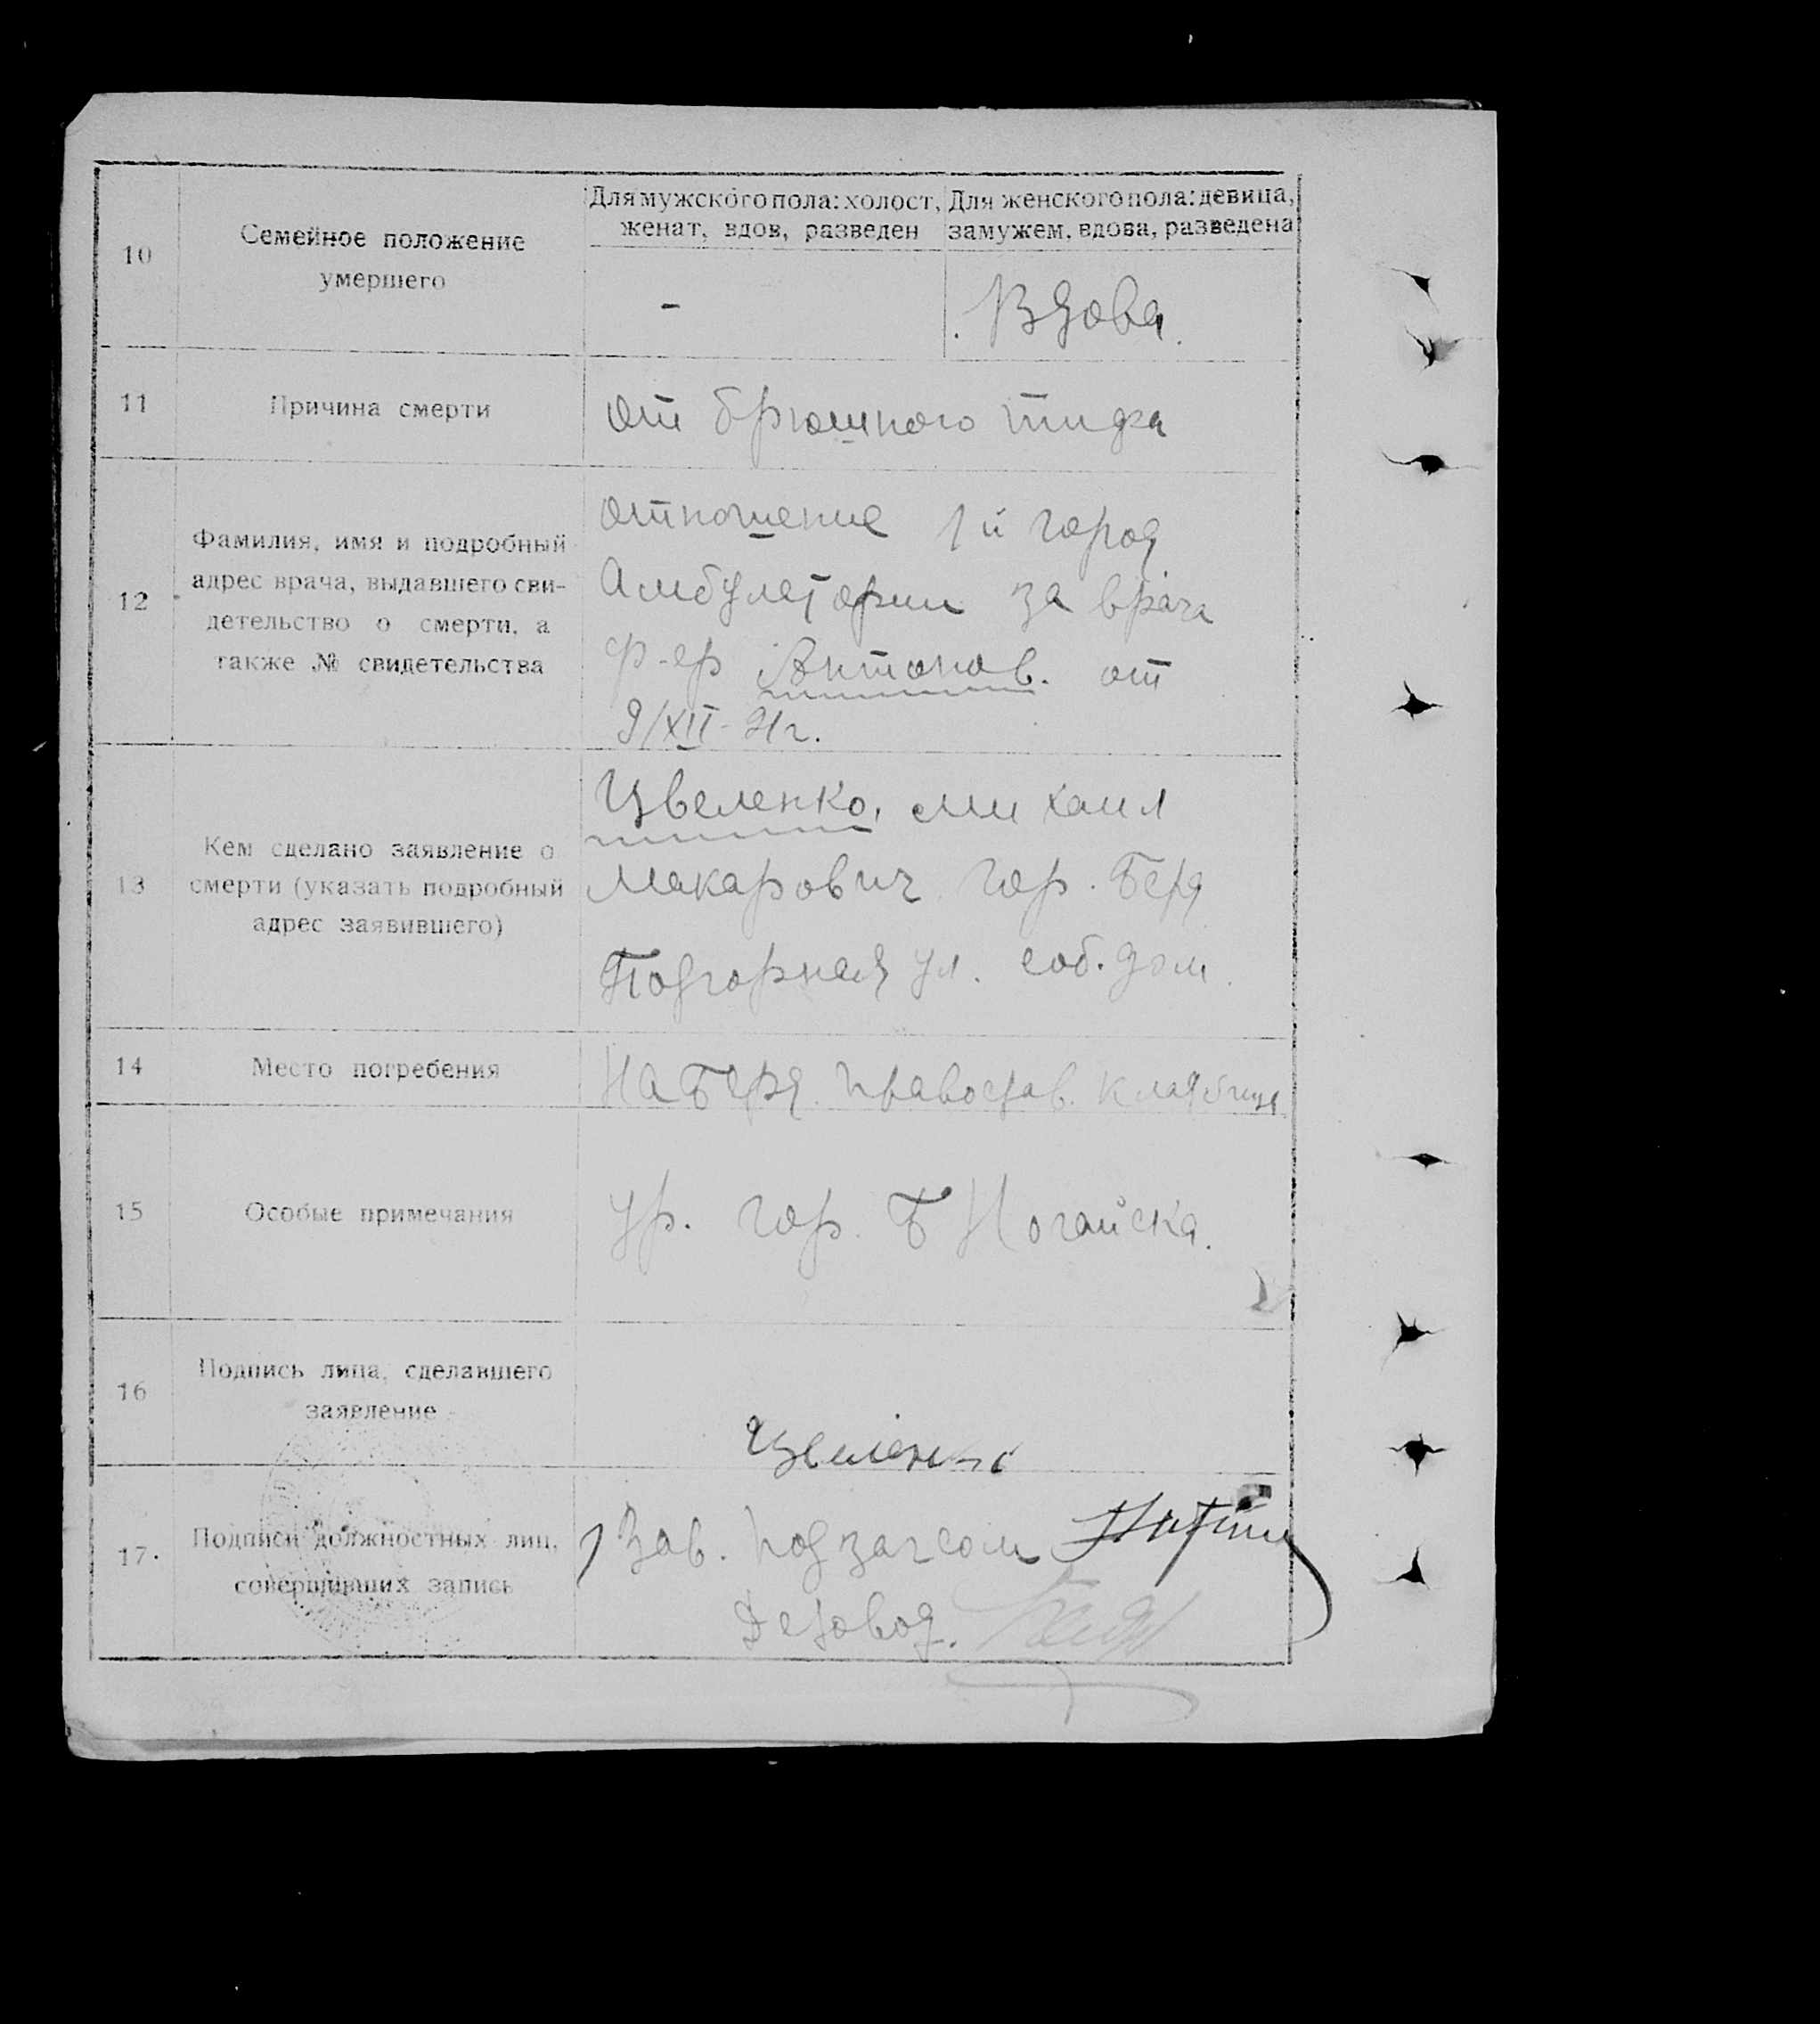 Для мужского пола: холост, женат, вдов, разведен
Для женского пола: девица, замужем, вдова, разведена
10
Семейное положение
умершего
-
Вдова.
11
Причина смерти
от брюшного тифа
12
Фамилия, имя и подробный
адрес врача, выдавшего сви-
детельство о смерти, а
также № свидетельства
отношение 1й город
Амбулатории за врача
ф-ер Антонов. от
9/XII-21г.
13
Кем сделано заявление о
смерти (указать подробный
адрес заявившего)
Цвеленко, Михаил
Макарович гор. Берд
Подгорная ул. соб. дом.
14
Место погребения
На Берд. православ. кладбище
15
Особые примечания
ур. гор. Б Ногайска.
16
Подпись лица, сделавшего
заявление
Цвеленко
17.
Подписи должностных лиц,
совершивших запись
Зав. подзагсом
Деловод.